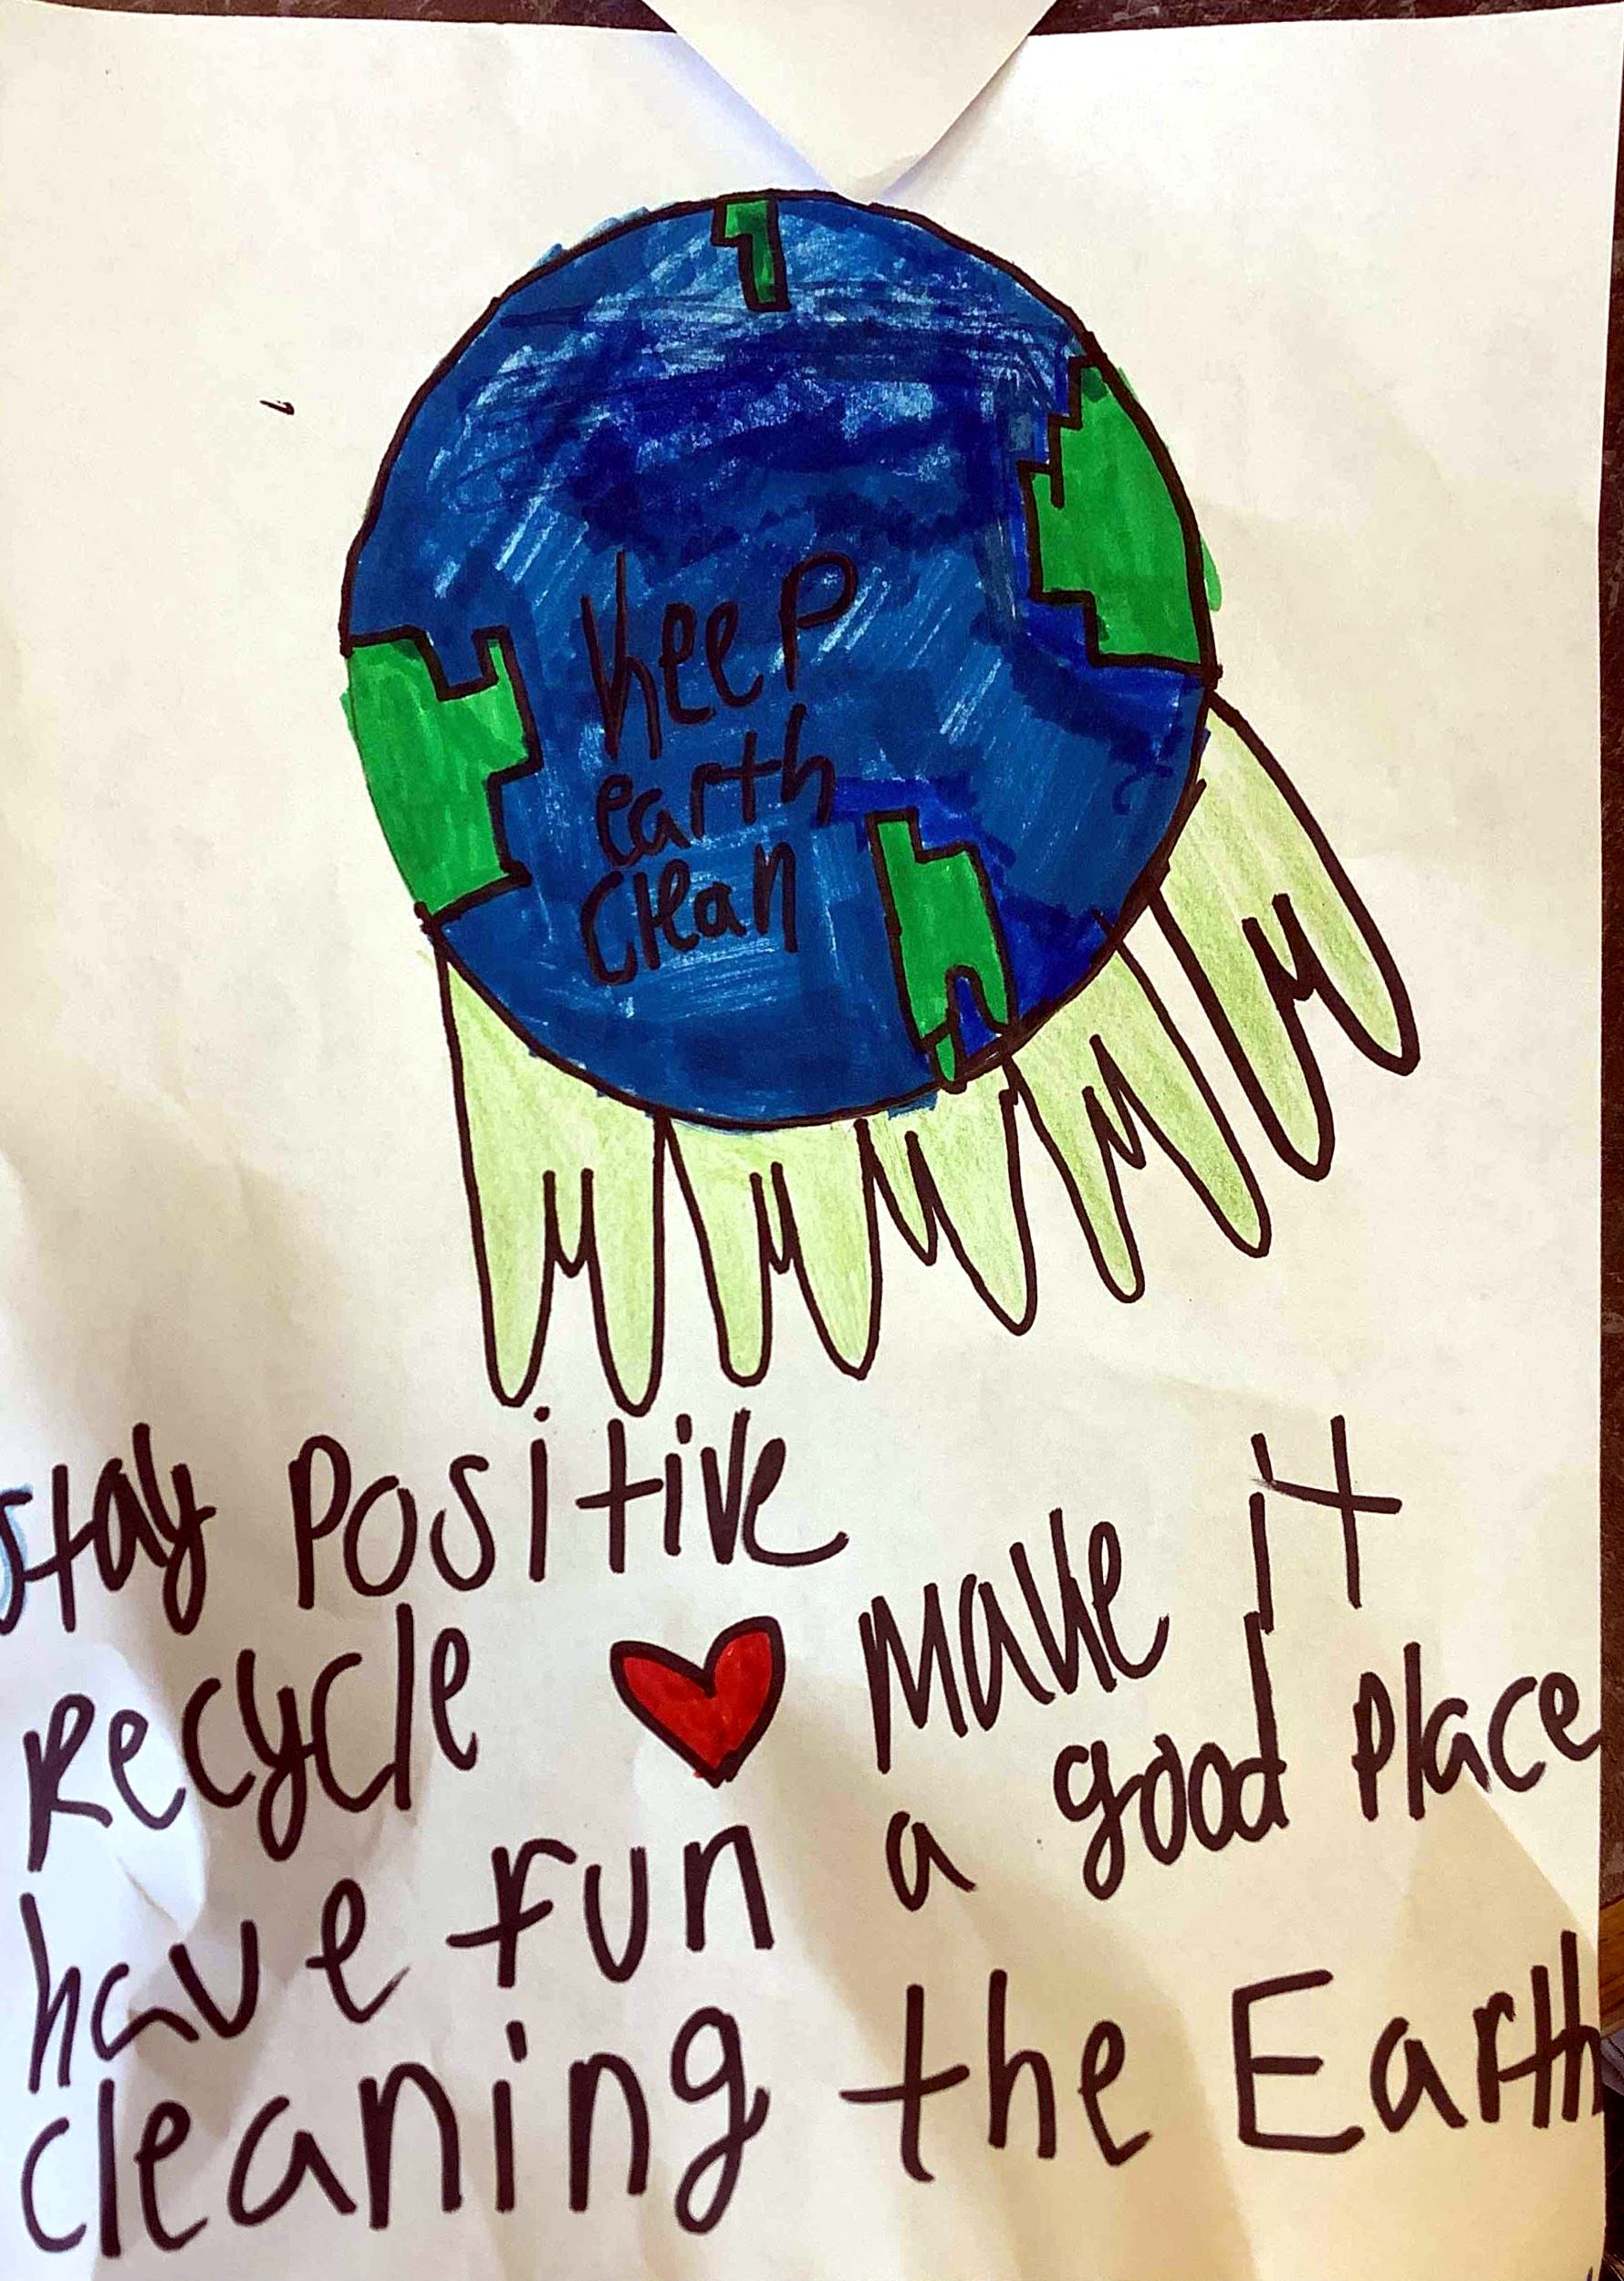 Keep
earth
Clean
Stay Positive
Recycle
have fun
make it
a good place
cleaning the Earth